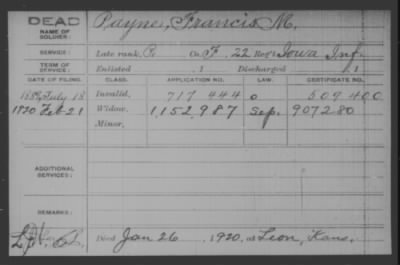 DEAD
NAME OF SOLDIER: Payne, Francis M.
SERVICE: Late rank, P. Co. F, 22 Reg't Iowa Inf.
TERM OF SERVICE: Enlisted , 1 Discharged , 1
DATE OF FILING. CLASS. APPLICATION NO. LAW. CERTIFICATE NO.
1889, July 18 Invalid, 717 444 o 509 400
1920 Feb-21 Widow, 1,152,987 Sep. 907280
Minor,
ADDITIONAL SERVICES:
REMARKS:
Died Jan 26 , 1920, at Leon, Kans.